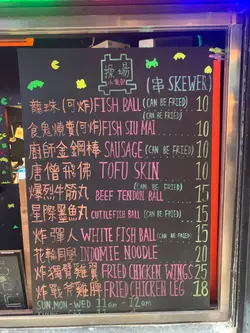 操場
(串 SKEWER)
龍珠(可炸)FISH BALL (CAN BE FRIED) 10
食鬼燒賣(可炸)FISH SIU MAI (CAN BE FRIED) 10
廚師金鋼棒 SAUSAGE (CAN BE FRIED) 10
唐僧飛佛 TOFU SKIN 10
爆烈牛筋丸 BEEF TENDON BALL 15
星際墨魚丸 CUTTLEFISH BALL (CAN BE FRIED) 15
炸彈人 WHITE FISH BALL (CAN BE FRIED) 15
花輪同 INDOMIE NOODLE 20
炸獨臂雞翼 FRIED CHICKEN WINGS 25
炸戰斧雞髀 FRIED CHICKEN LEG 18
SUN, MON-WED 11am - 12am